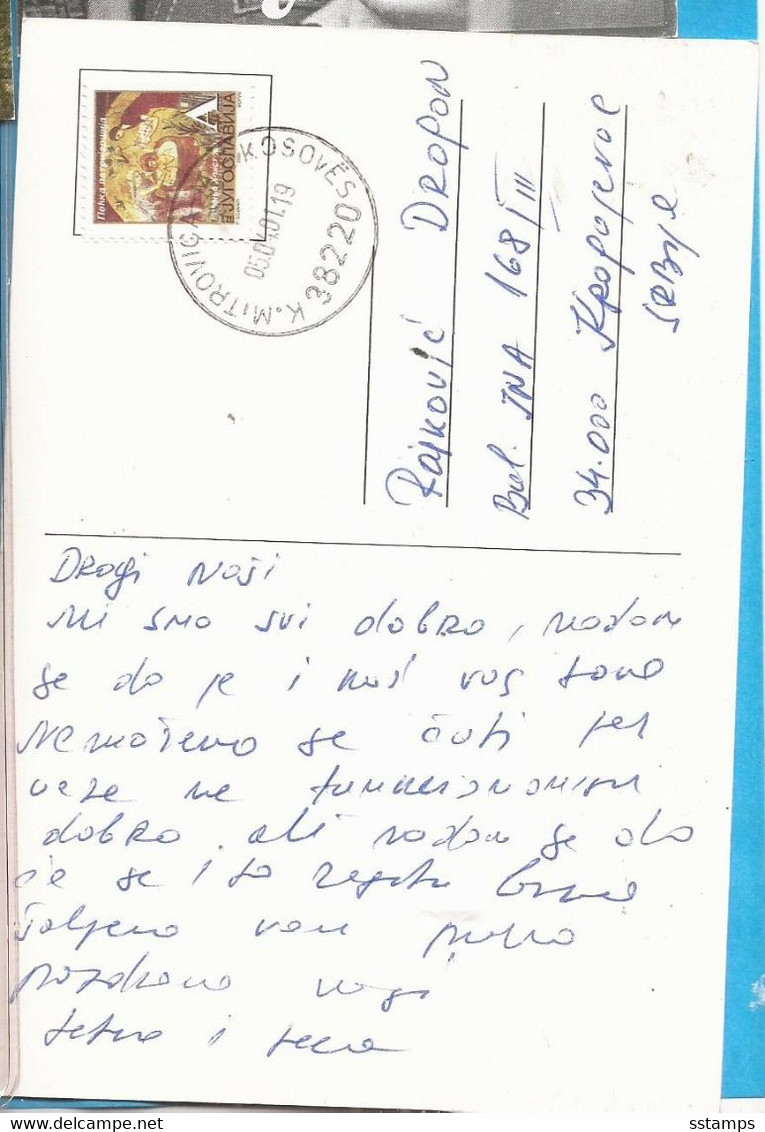 A
ЈУГОСЛАВИЈА
K. MITROVICA KOSOVËS
05.04.01.19
38220
Rajković Dragan
Bul. JNA 168/III
34.000 Kragujevac
SRBije
DRAGi NAŠi
Mi smo svi dobro, nadam
se da je i kod vas tako
Ne možemo se čuti jer
veze ne funkciononišu
dobro. ali nadam se da
će se i to rešiti
Šaljemo vam puno
pozdrava vaši
tetka i teča
sstamps